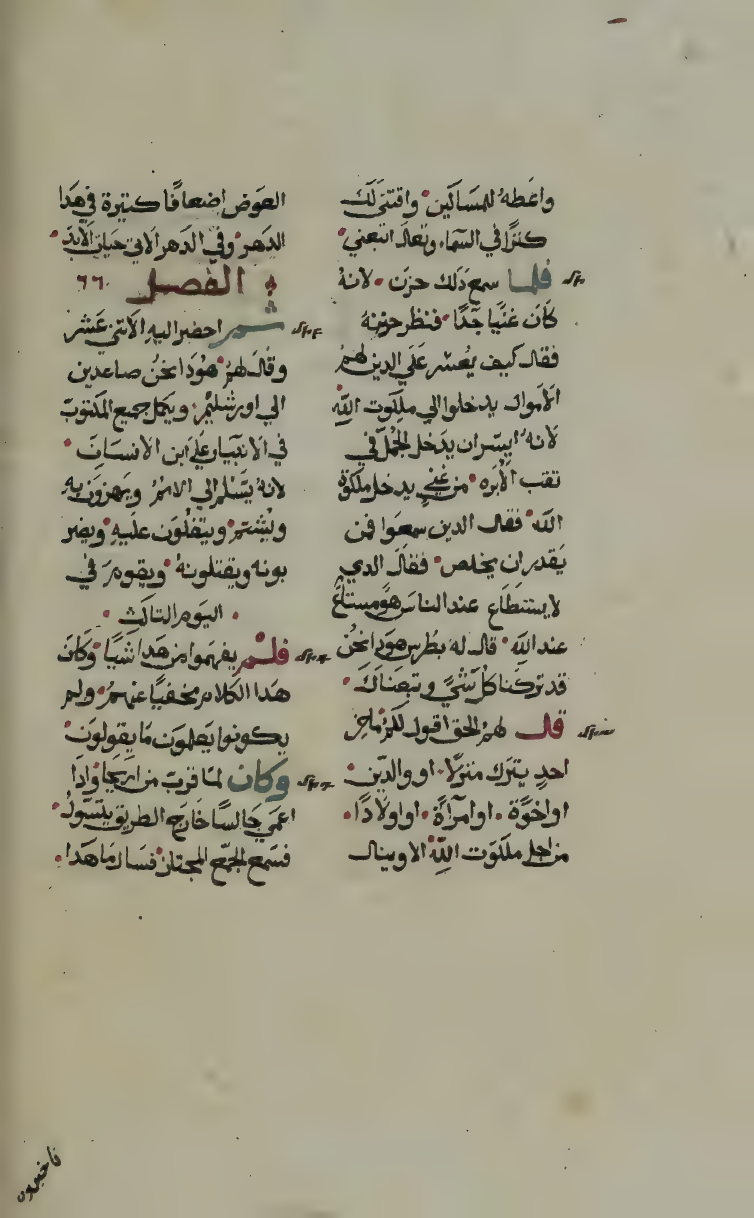 واعطه للمساكين واقتني لك
كنزًا في السماء وتعال اتبعني
فلما سمع ذلك حزن لانه
كان غنيا جدًا فنظر حزنه
فقال كيف يعسر علي الدين لهم
الاموال يدخلوا الي ملكوت الله
لانه ايسر ان يدخل الجمل في
تقب الابره من غني يدخل ملكوة
الله فقال الدين سمعوا فمن
يقدر ان يخلص فقال الدي
لا يستطاع عند الناس هو مستطاع
عند الله قال له بطرس هودا نحن
قد تركنا كل شي وتبعناك
قال لهم الحق اقول لكم ما من
احد يترك منزلا او والدين
او اخوة او امرأة او اولادًا
من اجل ملكوت الله الا وينال
العوض اضعافًا كتيرة في هدا
الدهر وفي الدهر الاتي حياة الابد
الفصل ٦٦
ثم احضر اليه الاتني عشر
وقال لهم هودا نحن صاعدين
الي اورشليم ويكمل جميع المكتوب
في الانبيا علي ابن الانسان
لانه يتسلم الي الامم ويهزون به
ويشتم ويتفلون عليه ويضر
بونه ويقتلونه ويقوم في
اليوم التالت
فلم يفهموا من هدا شيا وكان
هدا الكلام مخفيًا عنهم ولم
يكونوا يعلمون ما يقولون
وكان لما قرب من اريحا وادا
اعمي جالسًا خارج الطريق يتسول
فسمع الجمع المجتاز فسال ما هدا
فاخبرون